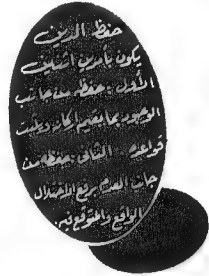 حفظ الدين
يكون بأمرين اثنين
الأول: حفظه من جانب
الوجود بما يقيم أركانه ويثبت
قواعده. الثاني: حفظه من
جانب العدم برفع الاختلال
الواقع والمتوقع فيه.